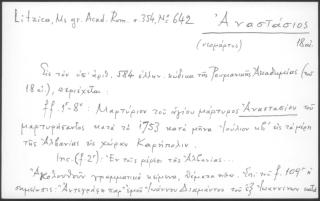 Litzica, Ms gr. Acad. Rom. σ 354, Nº 642 Ἀναστάσιος
(νεομάρτυς) 18 αἰ.
Εἰς τὸν ὑπ' ἀριθ. 584 ἑλλην. κώδικα τῆς Ρουμανικῆς Ἀκαδημίας (τοῦ
18 αἰ.), περιέχεται:
ff. 1ʳ-8ᵛ: Μαρτύριον τοῦ ἁγίου μάρτυρος Ἀναστασίου τοῦ
μαρτυρήσαντος κατὰ τὸ 1753 κατὰ μῆνα Ἰούλιον κβ' εἰς τὰ μέρη
τῆς Ἀλβανίας εἰς χώραν
Inc. (f. 2ʳ). Ἐν ταῖς μέρεσι τῆς Ἀλβανίας...
Ἀκολουθοῦν γραμματικὰ κείμενα, θέματα κπ. Ἐπὶ τοῦ f. 109ʳ ἡ
σημείωσις: Ἀντεγράφη παρ' ἐμοῦ Ἰωάννου Διαμάντου τοῦ ἐξ Ἰωαννίνων κατὰ